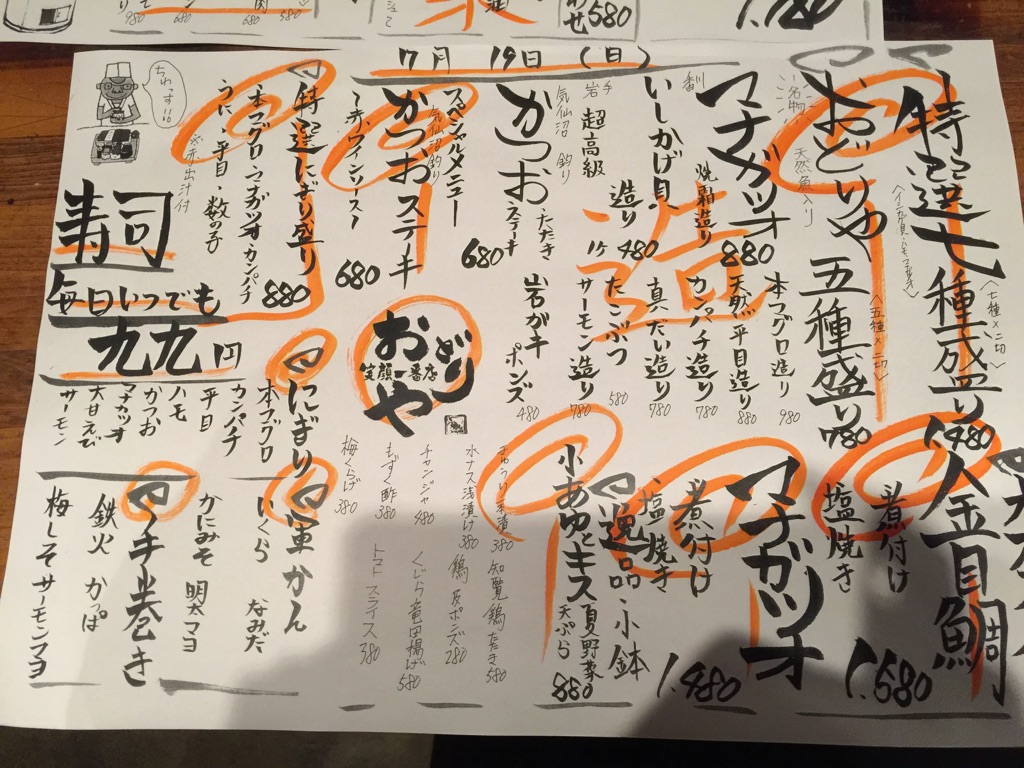 580
1.780
7月 19日 (日)
特選七種盛り
〈七種×二切〉
1.480
名物
おどりや五種盛り
天然魚入り
〈五種×二切〉
780
造
マナガツオ
焼霜造り
880
本マグロ造り 980
天然平目造り 880
カンパチ造り 780
真だい造り 780
いしかげ貝
造り
480
岩手
超高級
たこぶつ 580
サーモン造り 780
気仙沼 釣り
かつお
たたき
ステーキ
680
岩ガキ
ポンズ
480
スペシャルメニュー
気仙沼釣り
かつおステーキ
〜赤ワインソース〜
680
特選にぎり盛り
本マグロ・マナガツオ・カンパチ
うに・平目・数の子
※赤出汁付
880
ちわっす!!
寿司
毎日いつでも
九九円
おどりや
笑顔一番店
にぎり
本マグロ
カンパチ
平目
ハモ
かつお
マナカツオ
大甘えび
サーモン
軍かん
いくら
なみだ
かにみそ
明太マヨ
手巻き
鉄火
かっぱ
梅しそサーモンマヨ
金目鯛
煮付け
塩焼き
1.580
マナガツオ
煮付け
塩焼き
1.480
逸品・小鉢
小あゆとキス夏野菜
天ぷら
880
380
知覧鶏たたき 580
水ナス浅漬け 380
鶏皮ポンズ 280
チャンジャ 480
くじら竜田揚げ 580
もずく酢 380
トマトスライス 380
梅くらげ 380